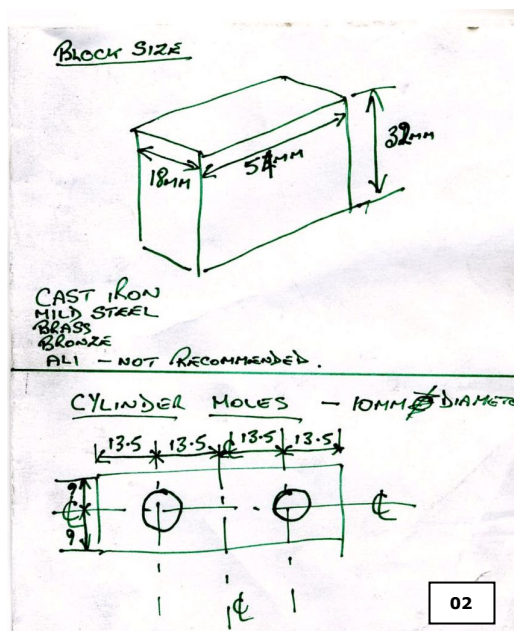 BLOCK SIZE
18MM
54MM
32MM
CAST IRON
MILD STEEL
BRASS
BRONZE
ALI - NOT RECOMMENDED.
CYLINDER HOLES - 10MM Ø DIAMETE
13.5 13.5 ℄ 13.5 13.5
9
℄ ℄
9
℄
02